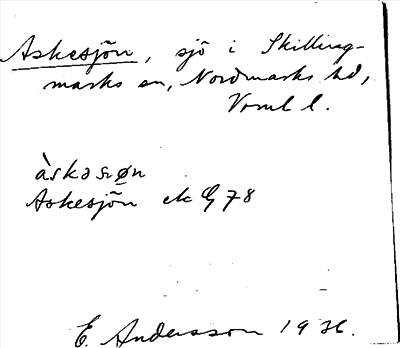 Askesjön, sjö i Skillings-
marks sn, Nordmarks hd,
Vrml l.
àskəsøn
Askesjön ek G 78
E. Andersson 1936.